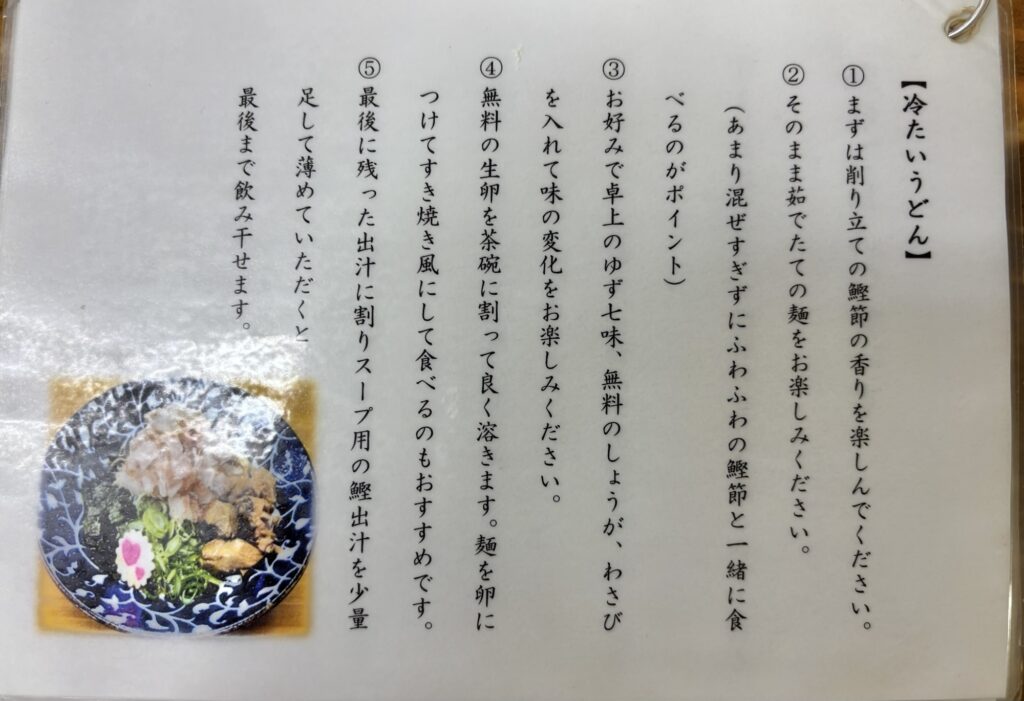 【冷たいうどん】
① まずは削り立ての鰹節の香りを楽しんでください。
② そのまま茹でたての麺をお楽しみください。
(あまり混ぜすぎずにふわふわの鰹節と一緒に食
べるのがポイント)
③ お好みで卓上のゆず七味、無料のしょうが、わさび
を入れて味の変化をお楽しみください。
④ 無料の生卵を茶碗に割って良く溶きます。麺を卵に
つけてすき焼き風にして食べるのもおすすめです。
⑤ 最後に残った出汁に割りスープ用の鰹出汁を少量
足して薄めていただくと
最後まで飲み干せます。